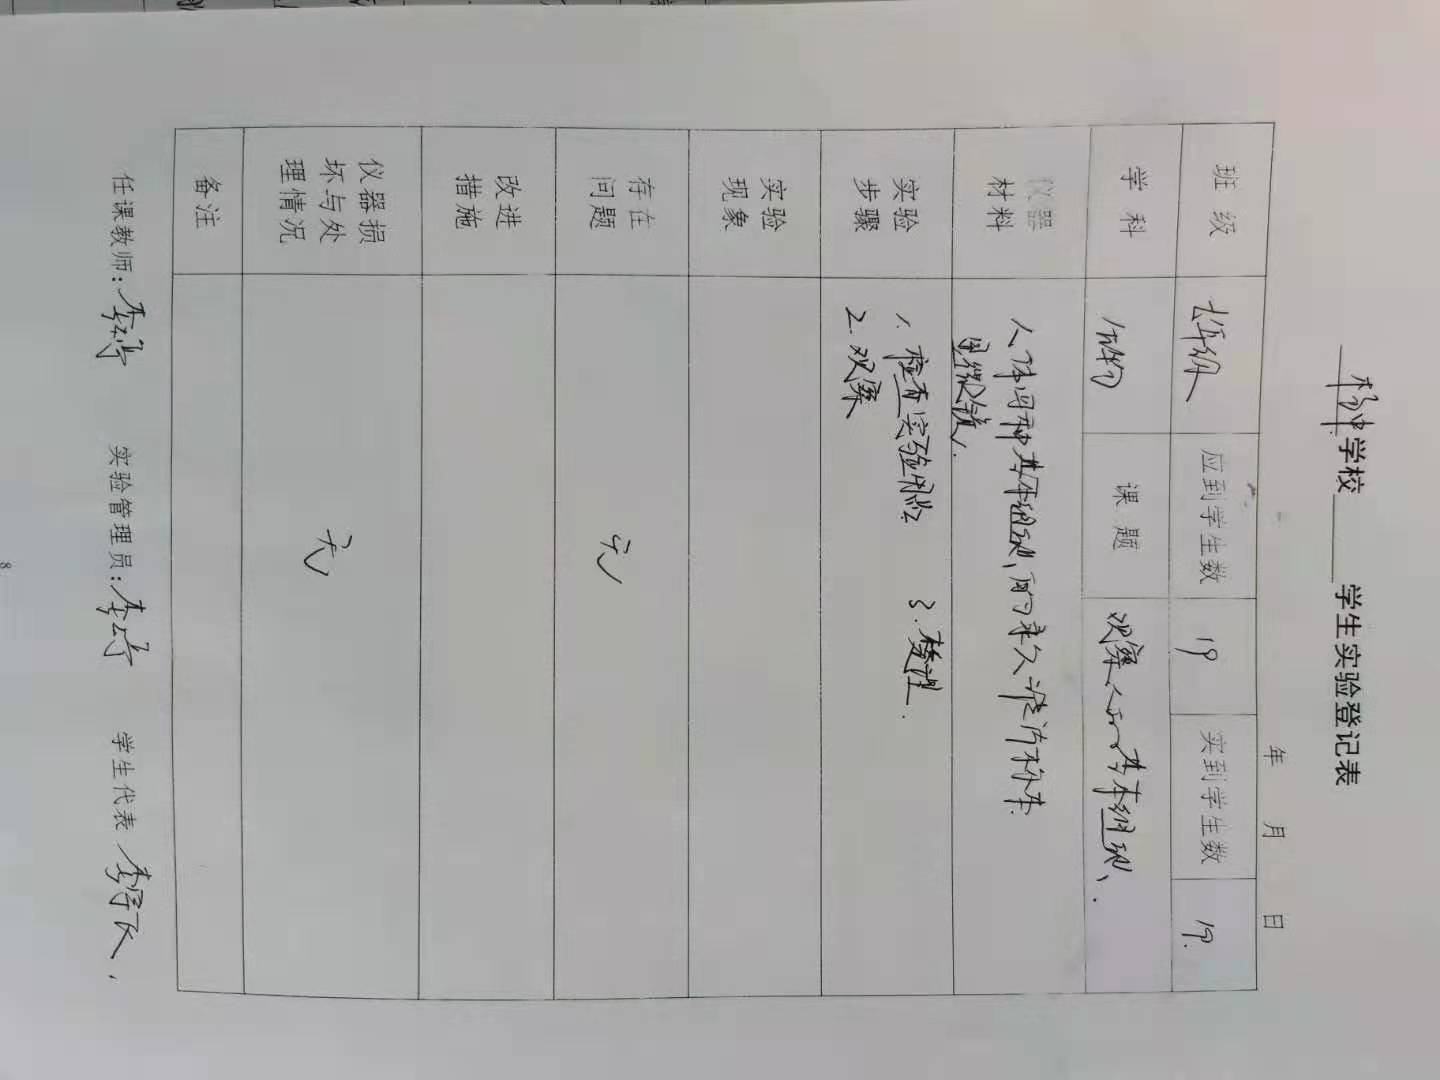 学校 学生实验登记表
年 月 日
班级 七年级 应到学生数 19 实到学生数 19.
学科 生物 课题 观察人的基本组织.
仪器材料 人体四种基本组织的永久玻片标本
显微镜.
实验步骤 1. 检查实验 3. 整理.
2. 观察
实验现象
存在问题 无
改进措施
仪器损坏与处理情况 无
备注
任课教师: 李 实验管理员: 李 学生代表 李
8